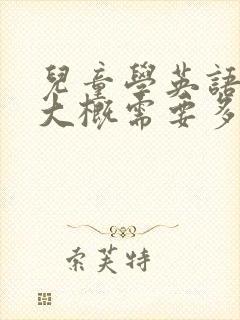 兒童學英語
大概需要多
索芙特